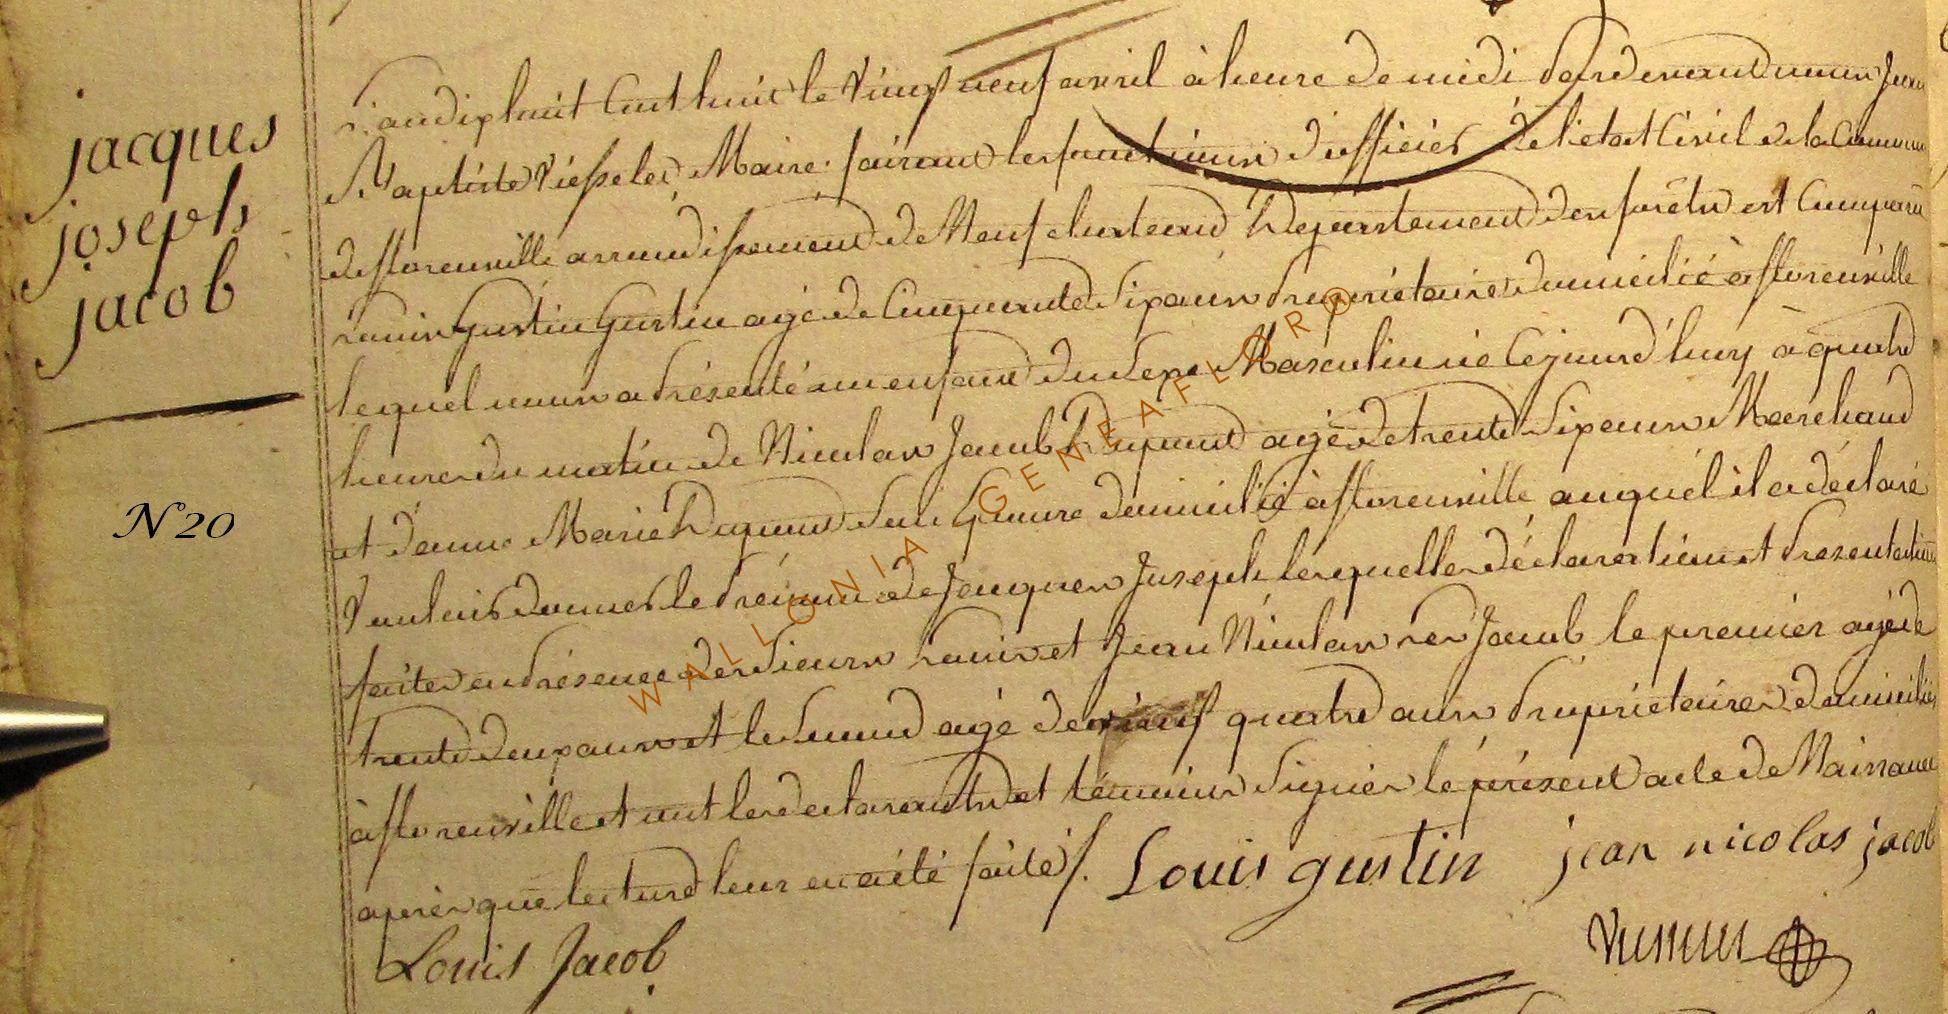 jacques
joseph
jacob
N 20
L'an dix huit Cent huit le Vingt neuf avril à heure de midi Pardevant nous Jean
Baptiste Maire faisant les fonctions d'officier de l'état Civil de la Commune
de florenville arrondissement de Neufchateaud Departement des forêts est Comparu
Louis Gustin Gustin agé de Cinquante Six ans Propriétaire domicilié à florenville
lequel nous a Présenté un enfant du Sexe Masculin né Cejourd'huy à quatre
heure du matin de Nicolas Jacob Dupont agé de trente Six ans Marchand
et d'anne Marie Dupont Son Epouse domicilié à florenville auquel il a déclaré
Vouloir donner le Prénom de Jacques Joseph lesquelles déclaration et Presentation
faites en Présence des Sieurs Louis et Jean Nicolas Jacob le premier agé de
trente deux ans et le Second agé de vingt quatre ans Propriétaires domiciliés
à florenville et ont les declarants et témoins Signér le présent acte de Naissance
après que lecture leur en a été faite /.
Louis gustin jean nicolas jacob
Louis Jacob
WALLONIA GENEAFLORO